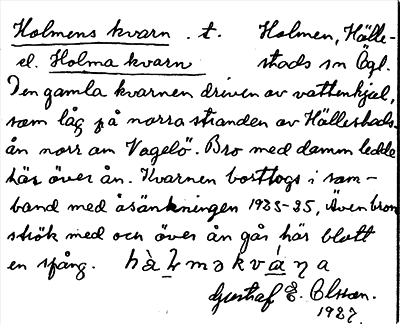 Holmens kvarn . t. Holmen, Hälle-
el. Holma kvarn stads sn Ögl.
Den gamla kvarnen driven av vattenhjul,
som låg på norra stranden av Hällestads-
ån norr om Vagelö. Bro med damm ledde
här över ån. Kvarnen borttogs i sam-
band med åsänkningen 1925-35, Även bron
strök med och över ån går här blott
en spång.
Gustaf E. Olsson.
1937.